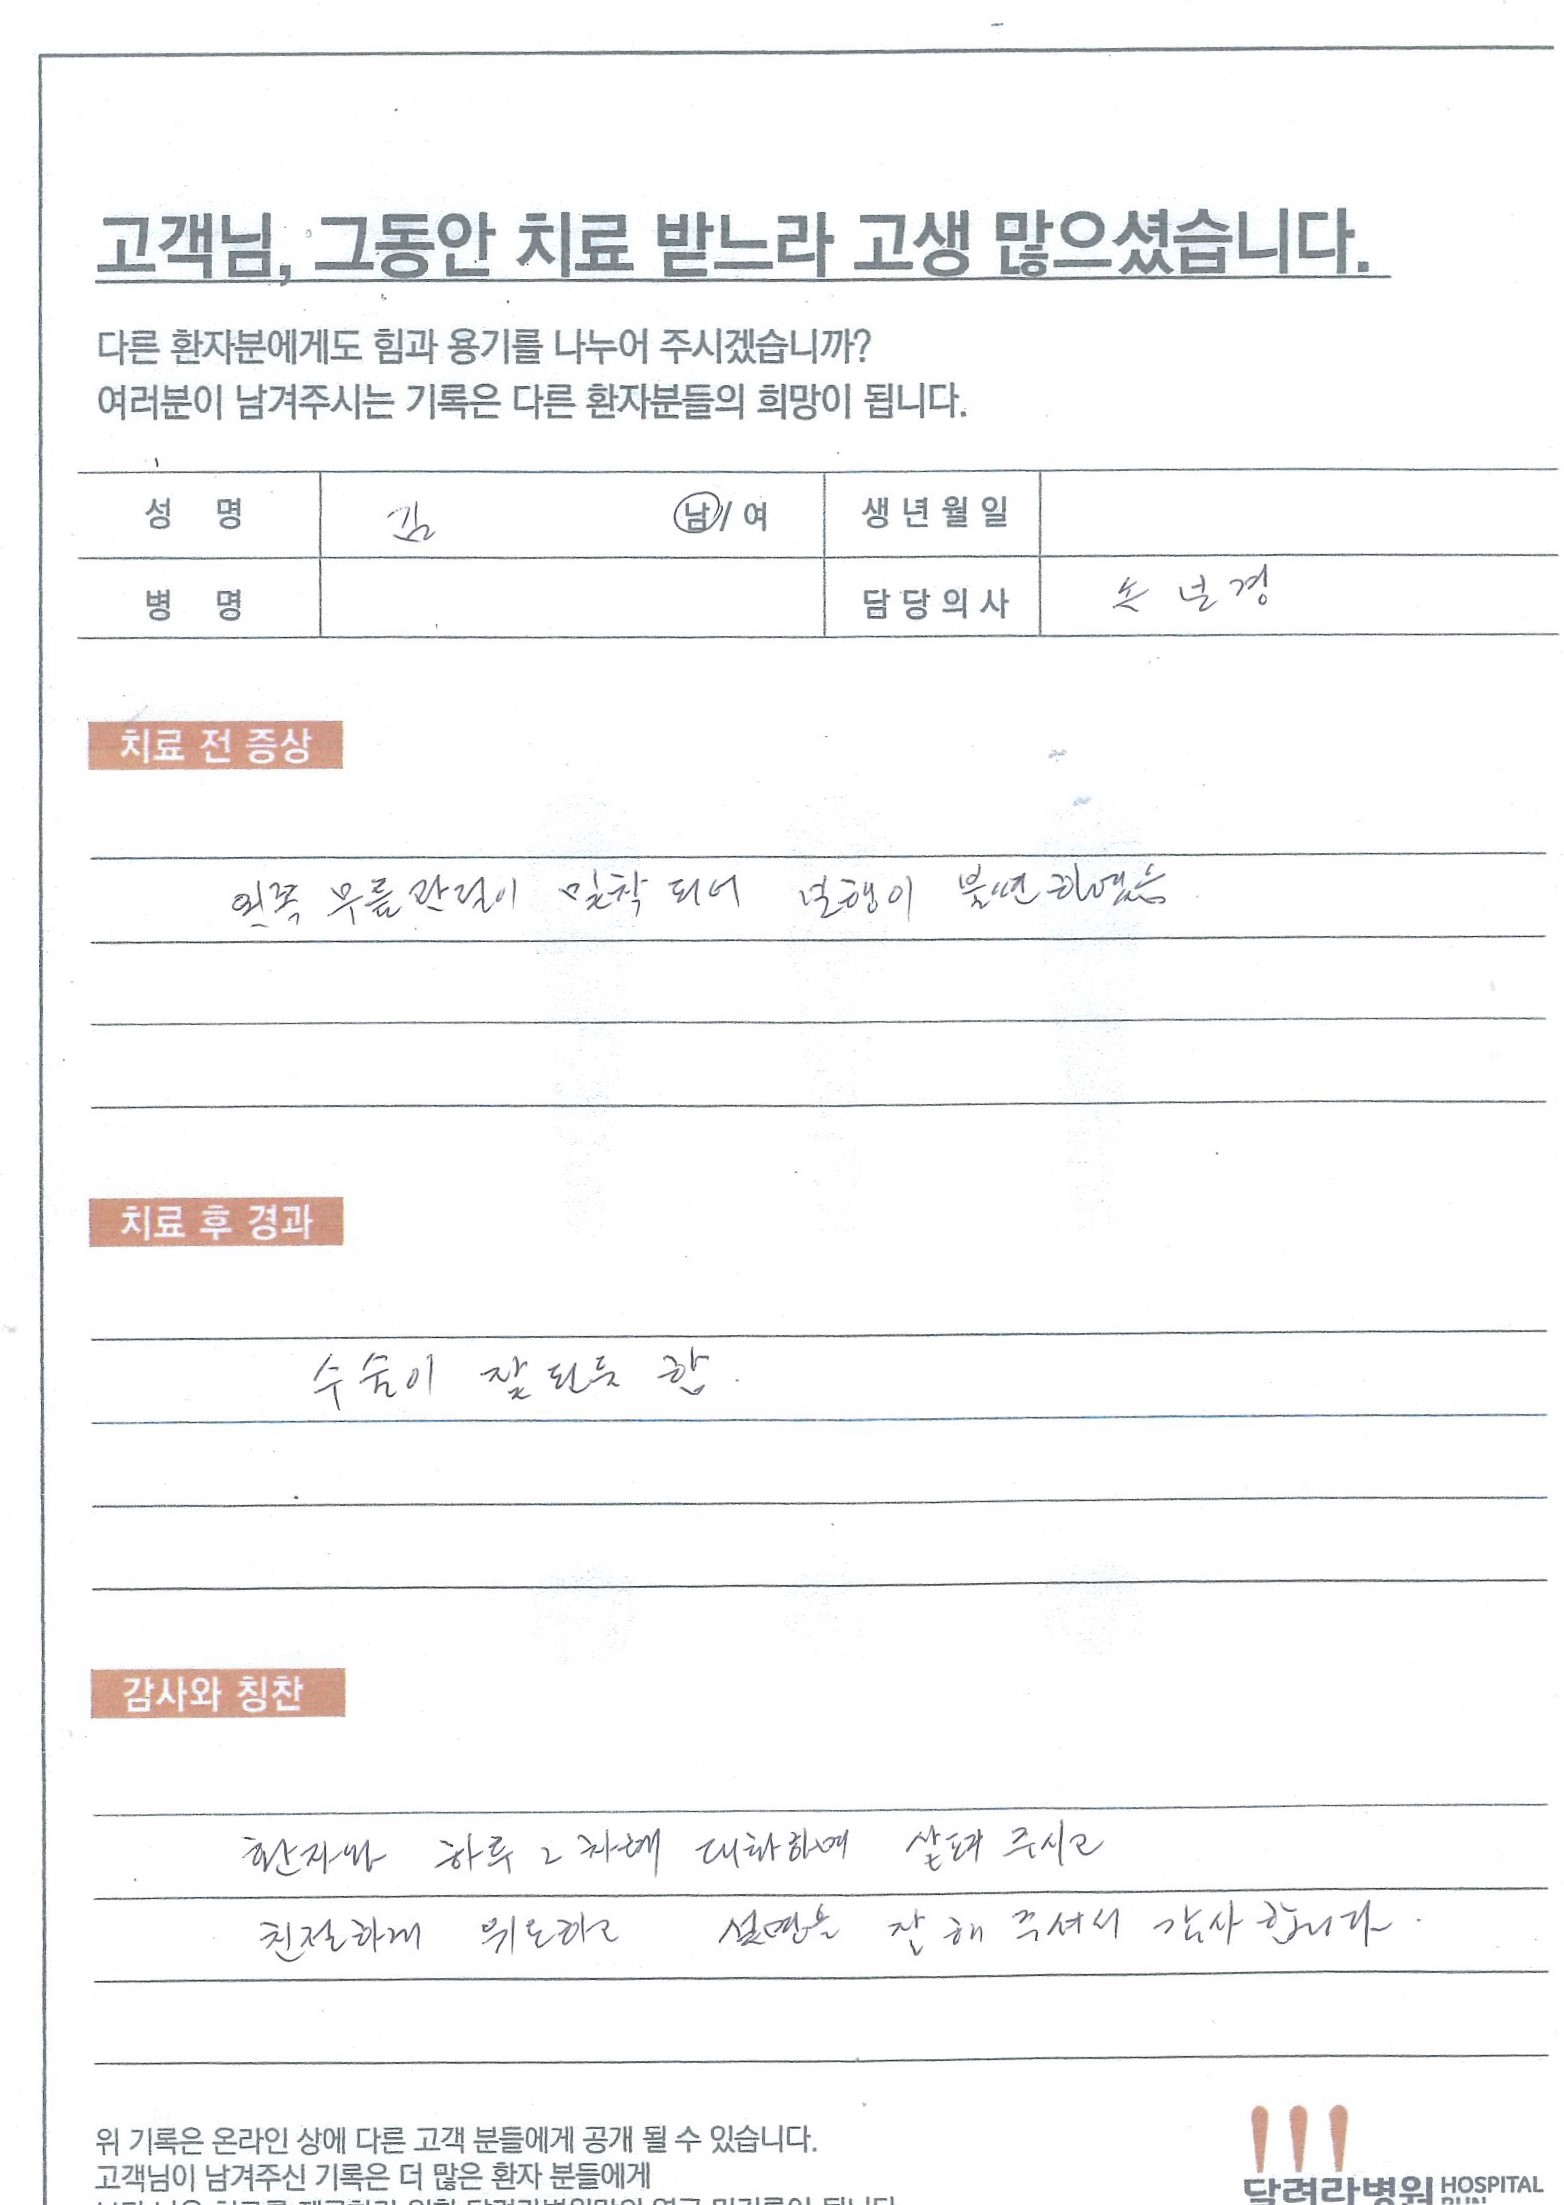 고객님, 그동안 치료 받느라 고생 많으셨습니다.
다른 환자분에게도 힘과 용기를 나누어 주시겠습니까?
여러분이 남겨주시는 기록은 다른 환자분들의 희망이 됩니다.
성 명 김 남/여 생년월일
병 명 담당의사 손 경
치료 전 증상
왼쪽 무릎관절이 밀착 되어 보행이 불편하였음
치료 후 경과
수술이 잘 된듯 함.
감사와 칭찬
환자와 하루 2차례 대화하며 살펴 주시고
친절하게 위로하고 설명을 잘 해 주셔서 감사합니다.
위 기록은 온라인 상에 다른 고객 분들에게 공개 될 수 있습니다.
고객님이 남겨주신 기록은 더 많은 환자 분들에게
달려라병원 HOSPITAL
RUN